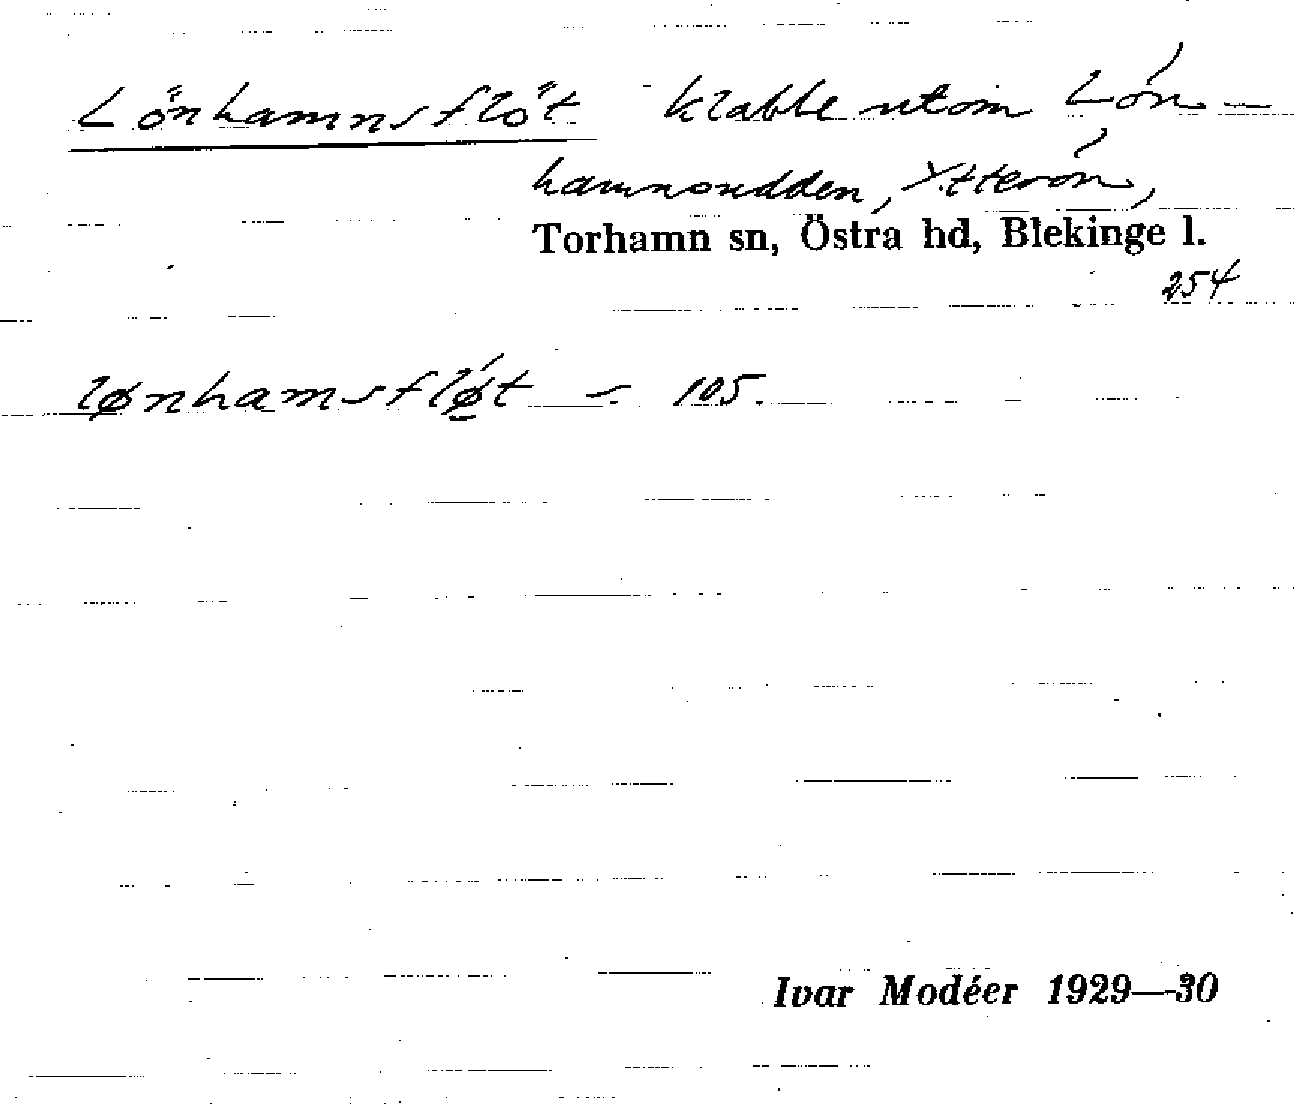 Lönhamnsflöt klabbe utom Lön-
hamnsudden, Ytterön,
Torhamn sn, Östra hd, Blekinge l.
254
lønhamsfløt - 105.
Ivar Modéer 1929—30